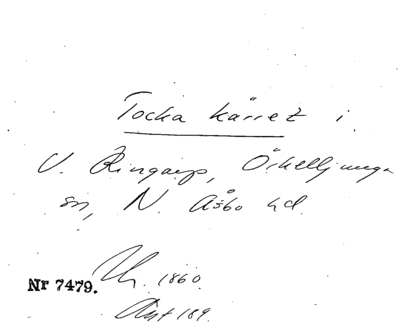 Tocka kärret i
V. Ringarp, Örkelljunga
sn, N. Åsbo hd.
Nr 7479. Uh. 1860.
Ant 189.